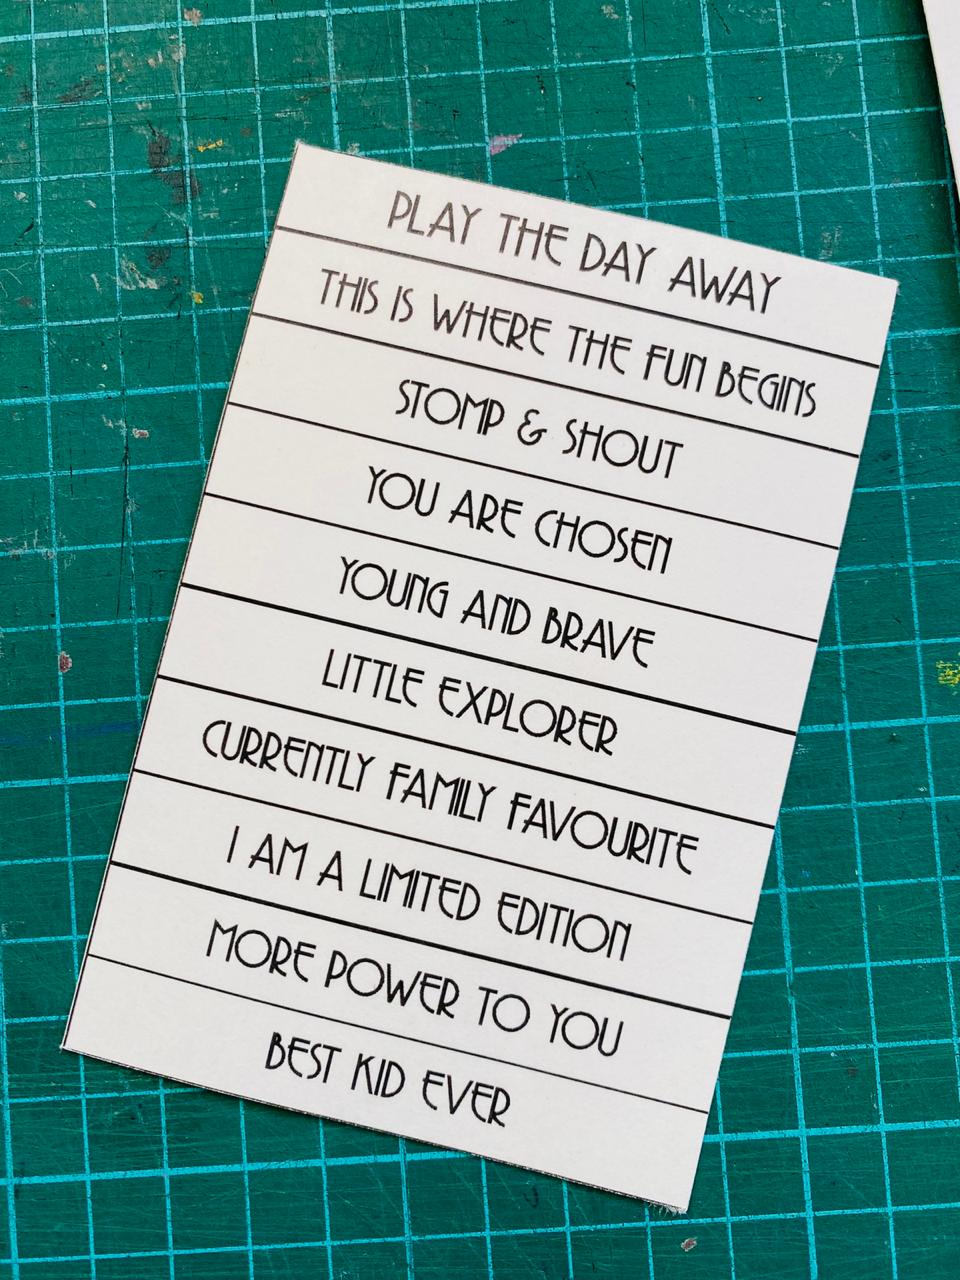 PLAY THE DAY AWAY
THIS IS WHERE THE FUN BEGINS
STOMP & SHOUT
YOU ARE CHOSEN
YOUNG AND BRAVE
LITTLE EXPLORER
CURRENTLY FAMILY FAVOURITE
I AM A LIMITED EDITION
MORE POWER TO YOU
BEST KID EVER